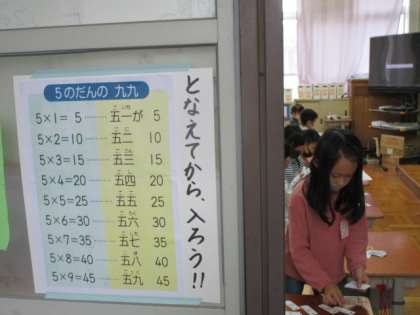 5のだんの 九九
5×1= 5 …… 五一が 5
5×2=10 …… 五二 10
5×3=15 …… 五三 15
5×4=20 …… 五四 20
5×5=25 …… 五五 25
5×6=30 …… 五六 30
5×7=35 …… 五七 35
5×8=40 …… 五八 40
5×9=45 …… 五九 45
となえてから、入ろう!!